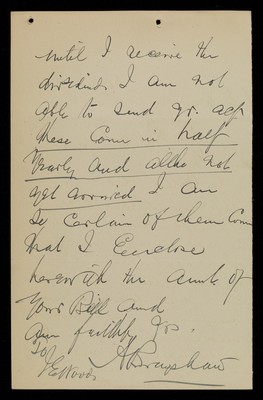 until I receive the
dividends I am not
able to send yr. acct
these Come in half
Yearly and altho not
yet arrived I am
so Certain of them Com
that I Enclose
herewith the amt of
Your Bill and
am faithfully yrs.